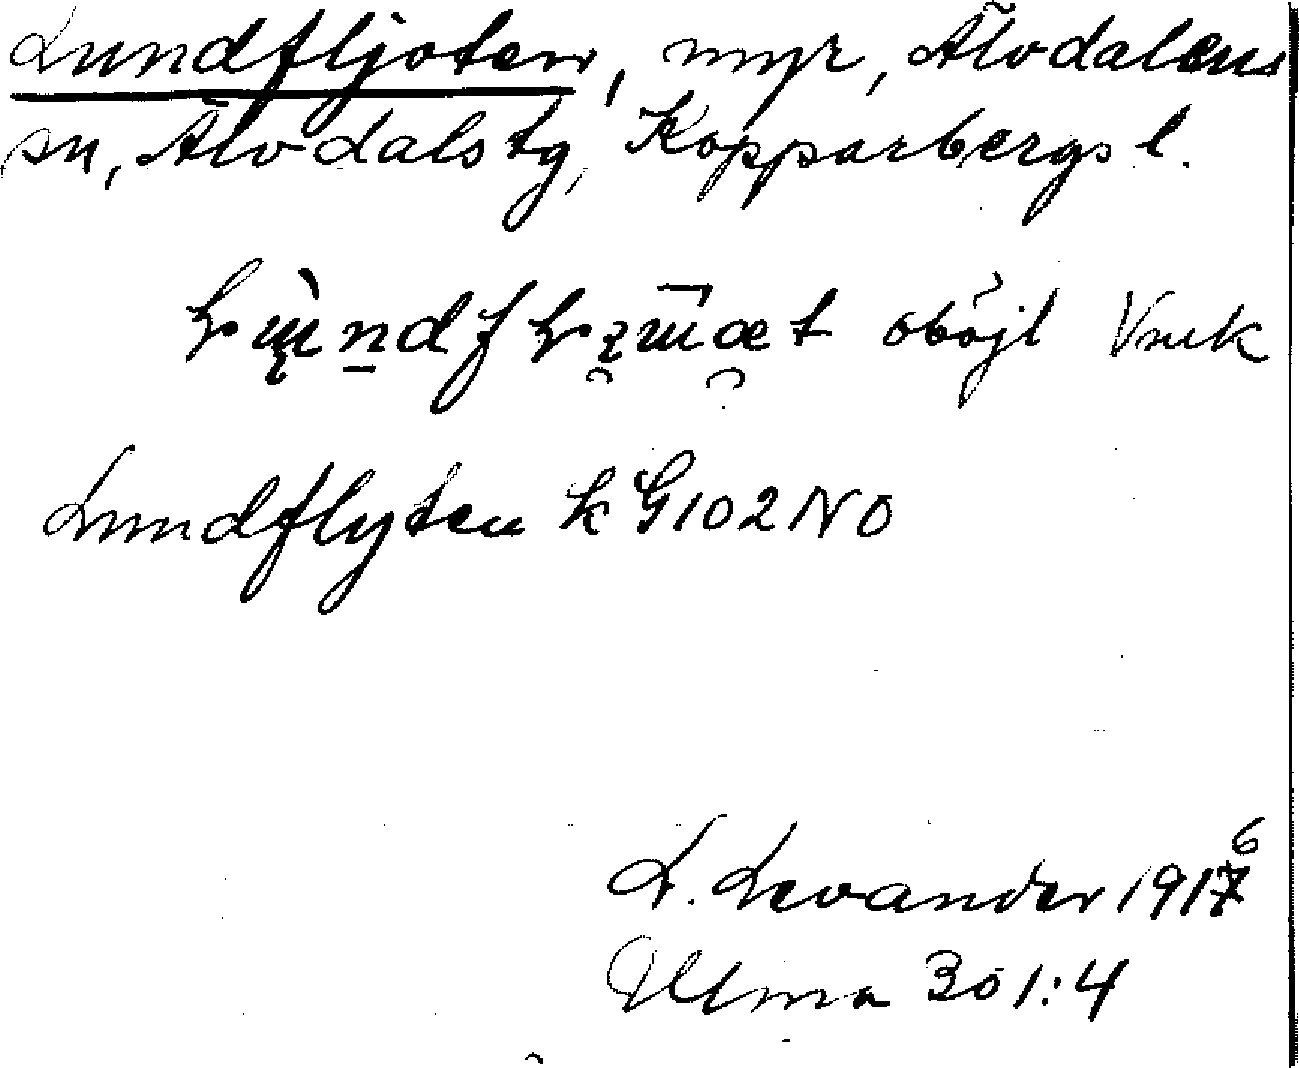 Lundfljoten, myr, Älvdalens
sn, Älvdalstg, Kopparbergs l.
oböjl
Lundflyten k G 102 NO
L. Levander 1916
Ulma 301:4